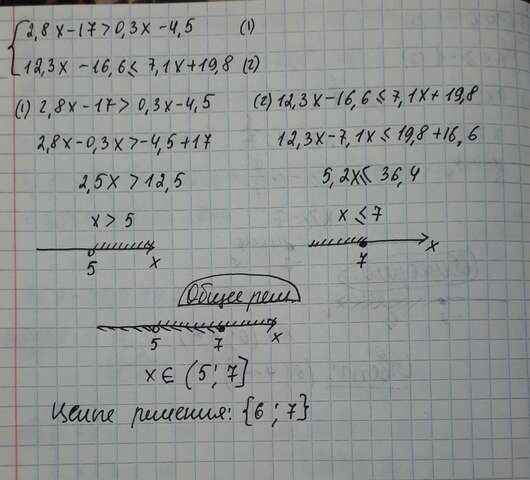 2,8x-17>0,3x-4,5 (1)
12,3x-16,6≤7,1x+19,8 (2)
(1) 2,8x-17>0,3x-4,5 (2) 12,3x-16,6≤7,1x+19,8
2,8x-0,3x>-4,5+17 12,3x-7,1x≤19,8+16,6
2,5x>12,5 5,2x≤36,4
x>5 x≤7
5 x 7 x
Общее реш.
5 7 x
x∈(5;7]
Целые решения: {6;7}